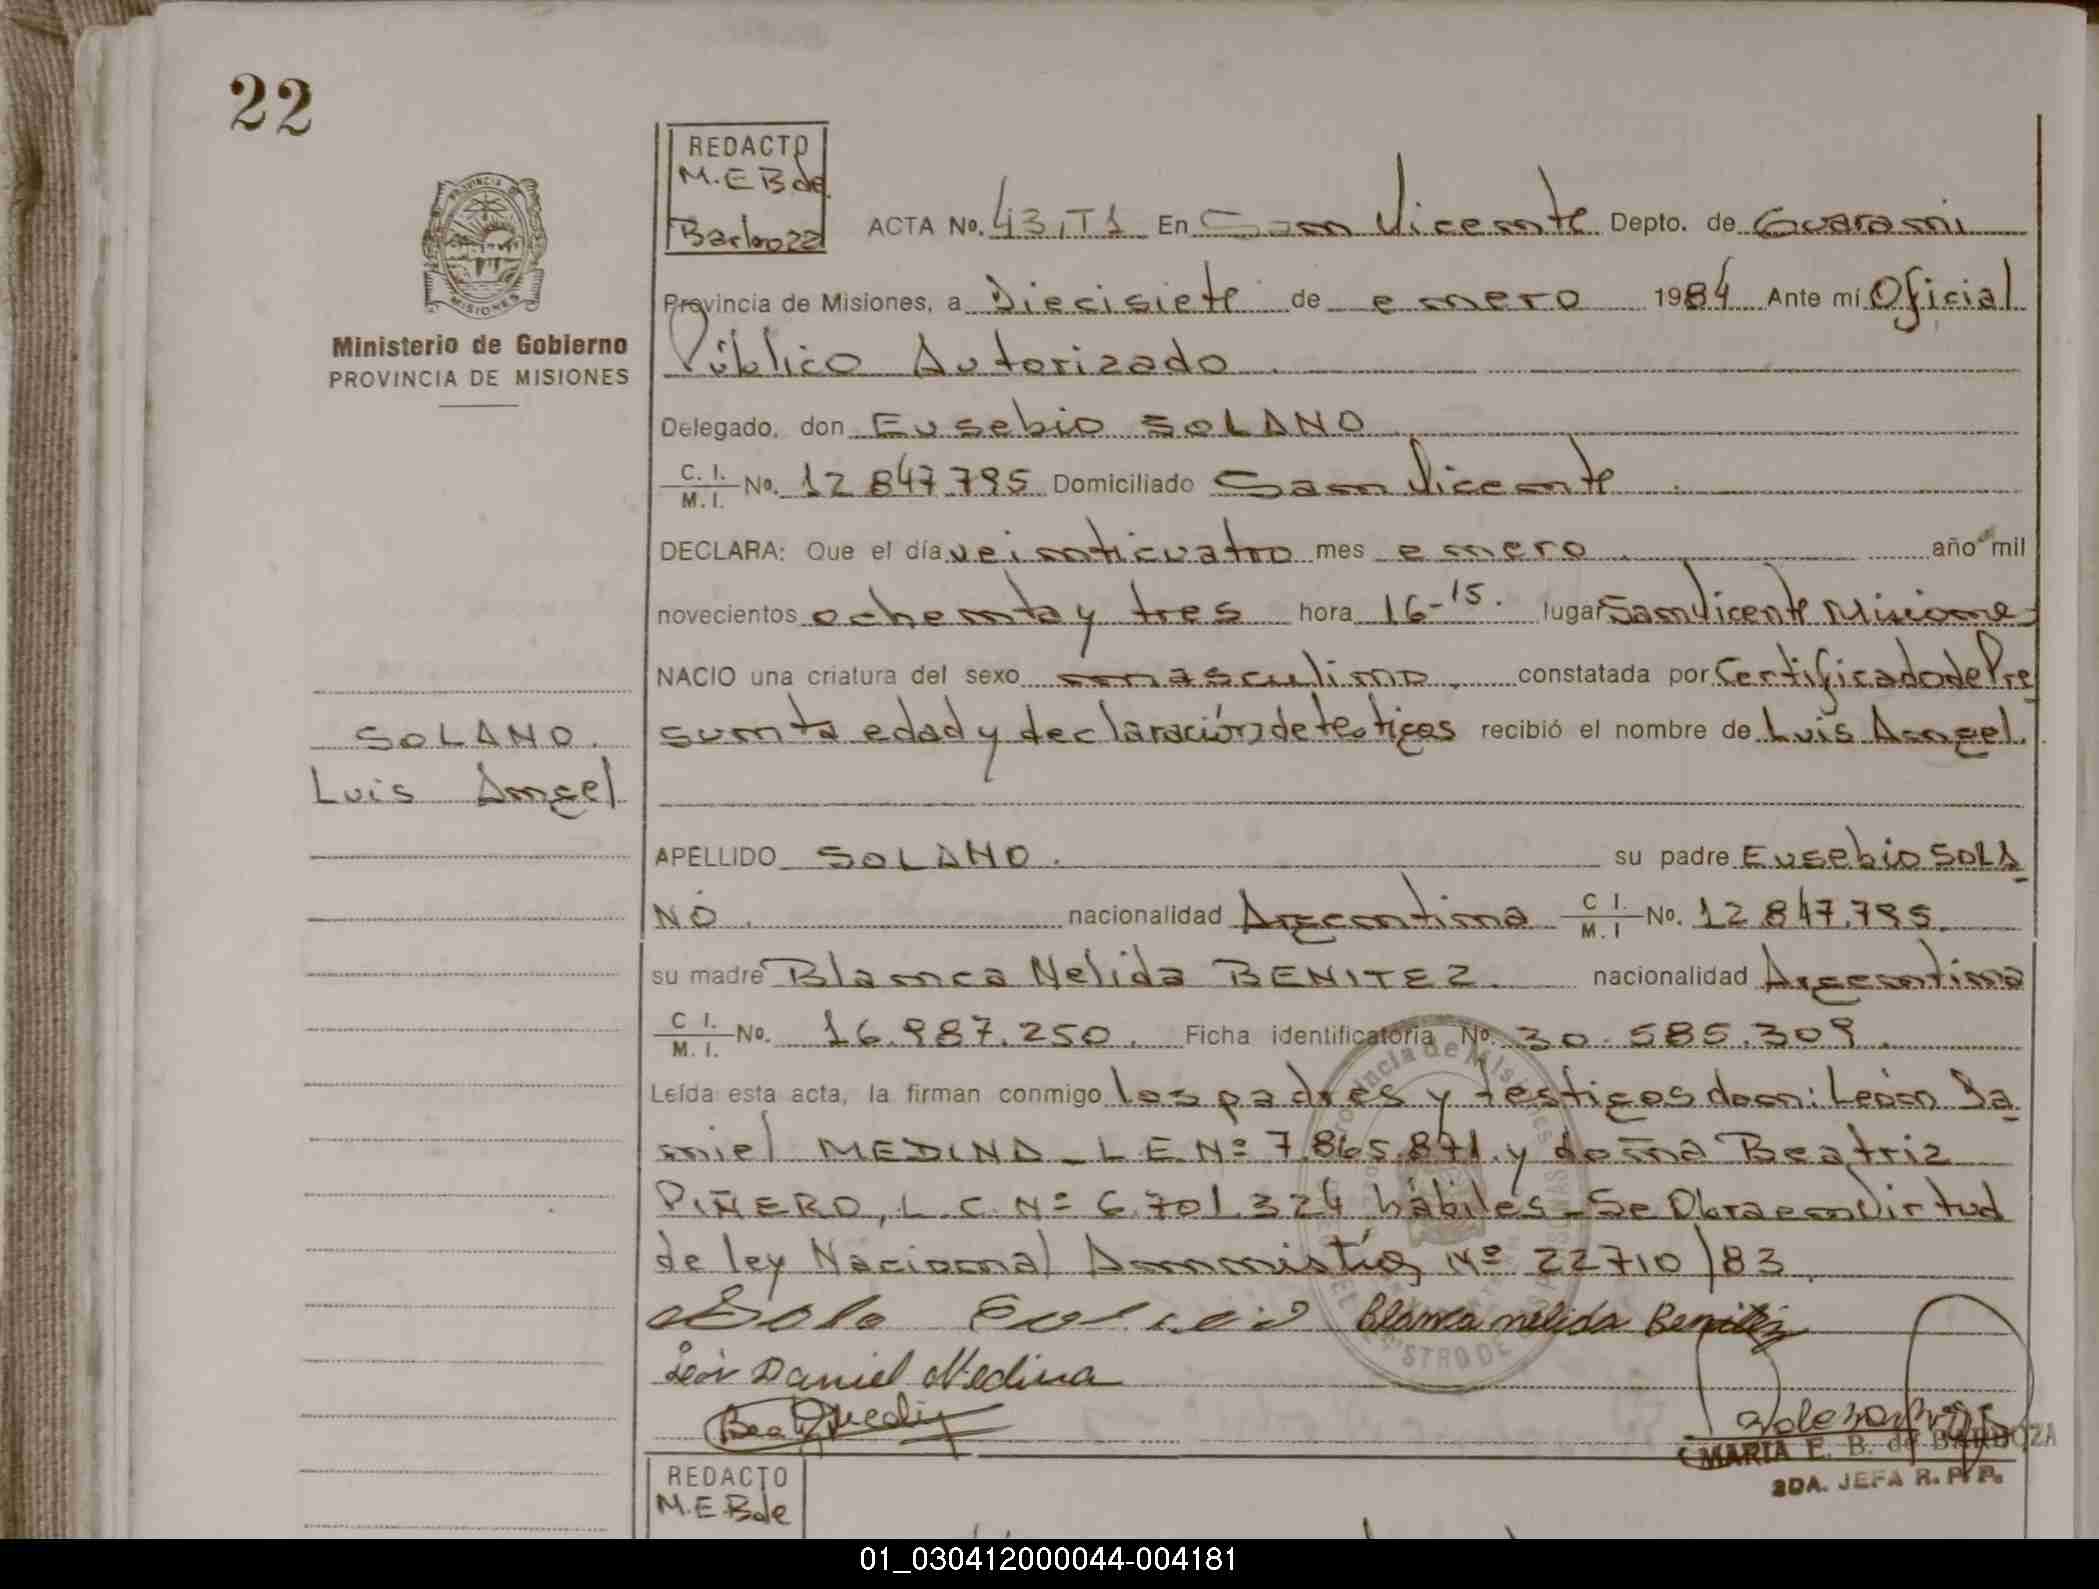 22
REDACTO
M.E B de
Barboza
ACTA No. 43, T1 En San Vicente Depto. de Guarani
PROVINCIA DE MISIONES
Provincia de Misiones, a Diecisiete de enero 1984 Ante mí Oficial
Ministerio de Gobierno
PROVINCIA DE MISIONES
Público Autorizado
Delegado, don Eusebio SOLANO
C. I. / M. I. No. 12 847.795 Domiciliado San Vicente
DECLARA: Que el día veinticuatro mes enero año mil
novecientos ochenta y tres hora 16-15. lugar San Vicente Misiones
NACIO una criatura del sexo masculino. constatada por Certificado de Pre
sunta edad y declaración de testigos recibió el nombre de Luis Angel.
SOLANO.
Luis Angel
APELLIDO SOLANO. su padre Eusebio SOLA
NO. nacionalidad Argentina C I. / M. I No. 12 847.795.
su madre Blanca Nelida BENITEZ. nacionalidad Argentina
C I. / M. I. No. 16.987.250. Ficha identificatoria No. 30.585.309.
Leída esta acta, la firman conmigo los padres y testigos don: León Da
niel MEDINA - L E Nº 7.865.871. y doña Beatriz
PIÑERO, L. C. Nº 6.701.324 hábiles - Se Obra en Virtud
de ley Nacional Ammistía, Nº 22710/83
Blanca nelida Benitez
León Daniel Medina
MARIA E. B. de BARBOZA
2DA. JEFA R. P. P.
REDACTO
M.E B de
01_030412000044-004181